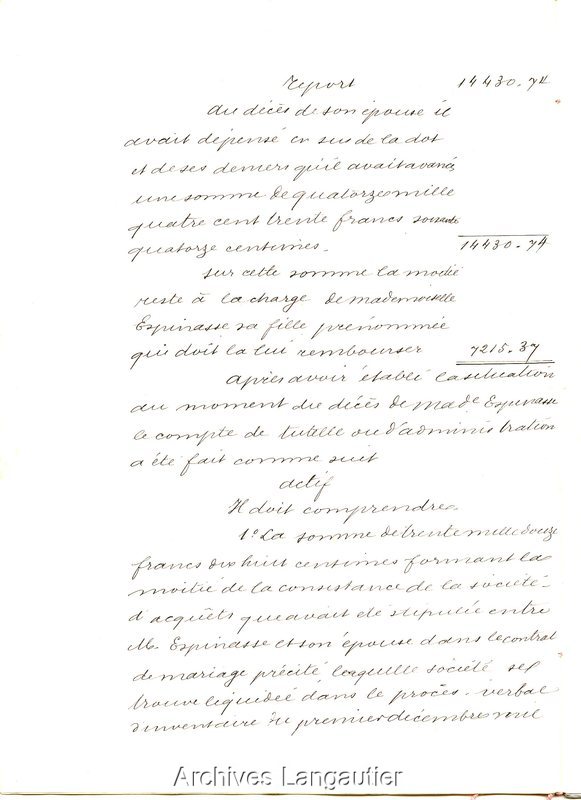 report 14430.74
du décès de son épouse il
avait dépensé en sus de la dot
et de ses deniers qu'il avait avancé
une somme de quatorze mille
quatre cent trente francs soixante
quatorze centimes. 14430.74
Sur cette somme la moitié
reste à la charge de mademoiselle
Espinasse sa fille prénommée
qui doit la lui rembourser 7215.37
après avoir établi la situation
au moment du décès de Made Espinasse
le compte de tutelle ou d'administration
a été fait comme suit
actif
Il doit comprendre
1º La somme de trente mille douze
francs dix huit centimes formant la
moitié de la consistance de la société
d'acquêts qui avait été stipulée entre
M. Espinasse et son épouse dans le contrat
de mariage précité laquelle société se
trouve liquidée dans le procès-verbal
d'inventaire du premier décembre mil
Archives Langautier